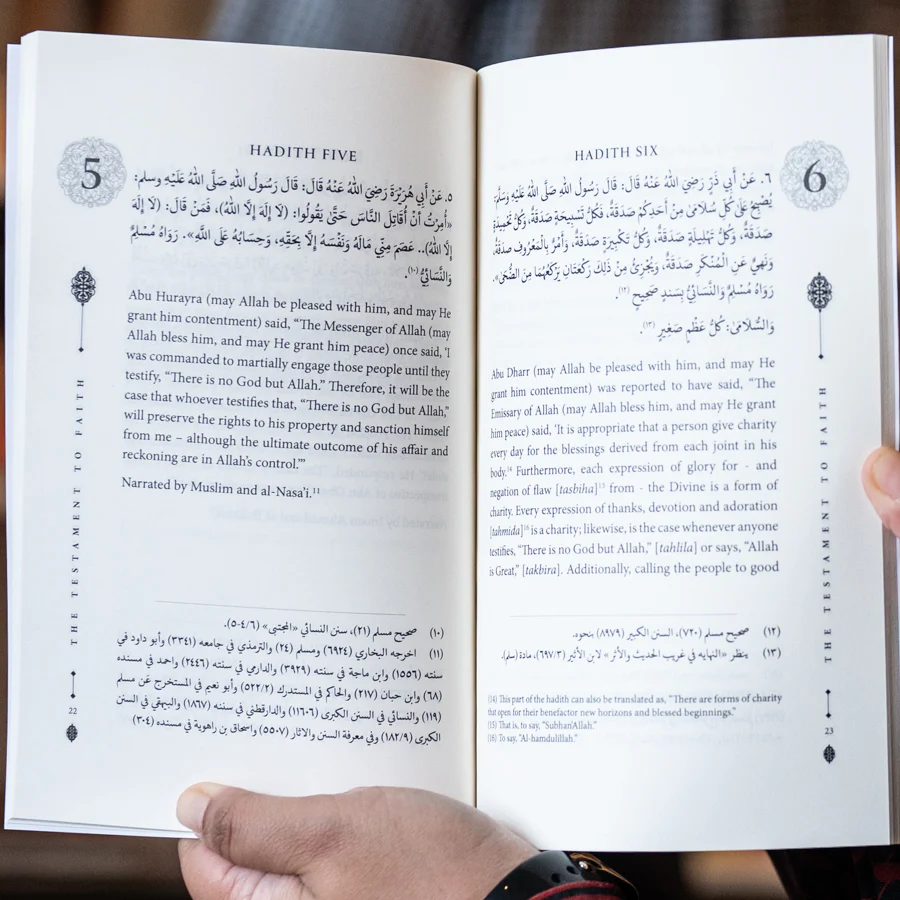 5
HADITH FIVE
٥. عَنْ أَبِي هُرَيْرَةَ رَضِيَ اللهُ عَنْهُ قَالَ: قَالَ رَسُولُ اللهِ صَلَّى اللهُ عَلَيْهِ وسلم:
«أُمِرْتُ أَنْ أُقَاتِلَ النَّاسَ حَتَّى يَقُولُوا: (لَا إِلَهَ إِلَّا اللهُ)، فَمَنْ قَالَ: (لَا إِلَهَ
إِلَّا اللهُ).. عَصَمَ مِنِّي مَالَهُ وَنَفْسَهُ إِلَّا بِحَقِّهِ، وَحِسَابُهُ عَلَى اللَّهِ». رَوَاهُ مُسْلِمٌ
وَالنَّسَائِيُّ (١٠).
Abu Hurayra (may Allah be pleased with him, and may He
grant him contentment) said, “The Messenger of Allah (may
Allah bless him, and may He grant him peace) once said, ‘I
was commanded to martially engage those people until they
testify, “There is no God but Allah.” Therefore, it will be the
case that whoever testifies that, “There is no God but Allah,”
will preserve the rights to his property and sanction himself
from me – although the ultimate outcome of his affair and
reckoning are in Allah’s control.’”
Narrated by Muslim and al-Nasa’i.11
(١٠) صحيح مسلم (٢١)، سنن النسائي «المجتبى» (٥-٤/٦).
(١١) اخرجه البخاري (٦٩٢٤) ومسلم (٢٤) والترمذي في جامعه (٣٣٤١) وأبو داود في
سننه (١٥٥٦) وابن ماجة في سننه (٣٩٢٩) والداري في سننه (٢٤٤٦) واحمد في مسنده
(٦٨) وابن حبان (٢١٧) والحاكم في المستدرك (٥٢٢/٢) وأبو نعيم في المستخرج عن مسلم
(١١٩) والنسائي في السنن الكبرى (١١٦٠٦) والدارقطني في سننه (١٨٦٧) والبيهقي في السنن
الكبرى (١٨٢/٩) وفي معرفة السنن والاثار (٥٥٠٧) واسحاق بن راهوية في مسنده (٣٠٤)
THE TESTAMENT TO FAITH
22
6
HADITH SIX
٦. عَنْ أَبِي ذَرٍّ رَضِيَ اللهُ عَنْهُ قَالَ: قَالَ رَسُولُ اللهِ صَلَّى اللهُ عَلَيْهِ وَسَلَّمَ:
يُصْبِحُ عَلَى كُلِّ سُلَامَى مِنْ أَحَدِكُمْ صَدَقَةٌ، فَكُلُّ تَسْبِيحَةٍ صَدَقَةٌ، وَكُلُّ تَحْمِيدَةٍ
صَدَقَةٌ، وَكُلُّ تَهْلِيلَةٍ صَدَقَةٌ، وَكُلُّ تَكْبِيرَةٍ صَدَقَةٌ، وَأَمْرٌ بِالْمَعْرُوفِ صَدَقَةٌ،
وَنَهْيٌ عَنِ الْمُنْكَرِ صَدَقَةٌ، وَيُجْزِئُ مِنْ ذَلِكَ رَكْعَتَانِ يَرْكَعُهُمَا مِنَ الضُّحَى».
رَوَاهُ مُسْلِمٌ وَالنَّسَائِيُّ بِسَنَدٍ صَحِيحٍ (١٢).
وَالسُّلَامَى: كُلُّ عَظْمٍ صَغِيرٍ (١٣).
Abu Dharr (may Allah be pleased with him, and may He
grant him contentment) was reported to have said, “The
Emissary of Allah (may Allah bless him, and may He grant
him peace) said, ‘It is appropriate that a person give charity
every day for the blessings derived from each joint in his
body.14 Furthermore, each expression of glory for - and
negation of flaw [tasbiha]15 from - the Divine is a form of
charity. Every expression of thanks, devotion and adoration
[tahmida]16 is a charity; likewise, is the case whenever anyone
testifies, “There is no God but Allah,” [tahlila] or says, “Allah
is Great,” [takbira]. Additionally, calling the people to good
(١٢) صحيح مسلم (٧٢٠)، السنن الكبير (٨٩٧٩) بنحوه.
(١٣) ينظر «النهايه في غريب الحديث والأثر» لابن الأثير (٦٩٧/٣)، مادة (سلم).
(14) This part of the hadith can also be translated as, “There are forms of charity
that open for their benefactor new horizons and blessed beginnings.”
(15) That is, to say, “Subhan’Allah.”
(16) To say, “Al-hamdulillah.”
THE TESTAMENT TO FAITH
23